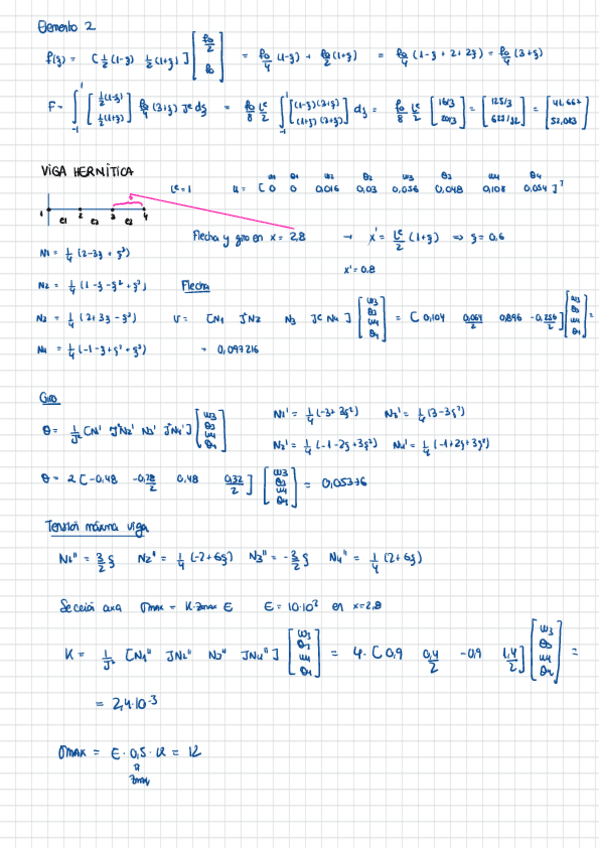 Elemento 2
f(ξ) = [ ½(1-ξ) ½(1+ξ) ] [ f0/2 f0 ] = f0/4 (1-ξ) + f0/2 (1+ξ) = f0/4 (1-ξ + 2 + 2ξ) = f0/4 (3+ξ)
F = ∫_{-1}^{1} [ ½(1-ξ) ½(1+ξ) ] f0/4 (3+ξ) Je dξ = f0/8 Le/2 ∫_{-1}^{1} [ (1-ξ)(3+ξ) (1+ξ)(3+ξ) ] dξ = f0/8 Le/2 [ 16/3 20/3 ] = [ 125/3 625/12 ] = [ 41,667 52,083 ]
VIGA HERMÍTICA
Le = 1 u = [ 0 0 0,016 0,03 0,056 0,048 0,108 0,054 ]ᵀ
w1 θ1 w2 θ2 w3 θ3 w4 θ4
1 2 3 4
e1 e2 e3
Flecha y giro en x = 2,8 → x' = Le/2 (1+ξ) ⇒ ξ = 0,6
x' = 0.8
N1 = ¼ (2-3ξ + ξ³)
N2 = ¼ (1-ξ-ξ² + ξ³)
N3 = ¼ (2+3ξ-ξ³)
N4 = ¼ (-1-ξ+ξ²+ξ³)
Flecha
v = [N1 JᵉN2 N3 JᵉN4] [ w3 θ3 w4 θ4 ] = [ 0,104 0,064/2 0,896 -0,256/2 ] [ w3 θ3 w4 θ4 ] =
= 0,097216
Giro
θ = 1/Jᵉ [N1' JᵉN2' N3' JᵉN4'] [ w3 θ3 w4 θ4 ]
N1' = ¼ (-3+3ξ²) N3' = ¼ (3-3ξ²)
N2' = ¼ (-1-2ξ+3ξ²) N4' = ¼ (-1+2ξ+3ξ²)
θ = 2 [ -0,48 -0,28/2 0,48 0,32/2 ] [ w3 θ3 w4 θ4 ] = 0,05376
Tensión máxima viga
N1'' = 3/2 ξ N2'' = ¼ (-2+6ξ) N3'' = -3/2 ξ N4'' = ¼ (2+6ξ)
σmax = K·zmax E E = 10·10³ en x=2,8
K = 1/J² [N1'' JN2'' N3'' JN4''] [ w3 θ3 w4 θ4 ] = 4· [ 0,9 0,4/2 -0,9 1,4/2 ] [ w3 θ3 w4 θ4 ] =
= 2,4·10⁻³
σmax = E · 0,5 · K = 12
zmax